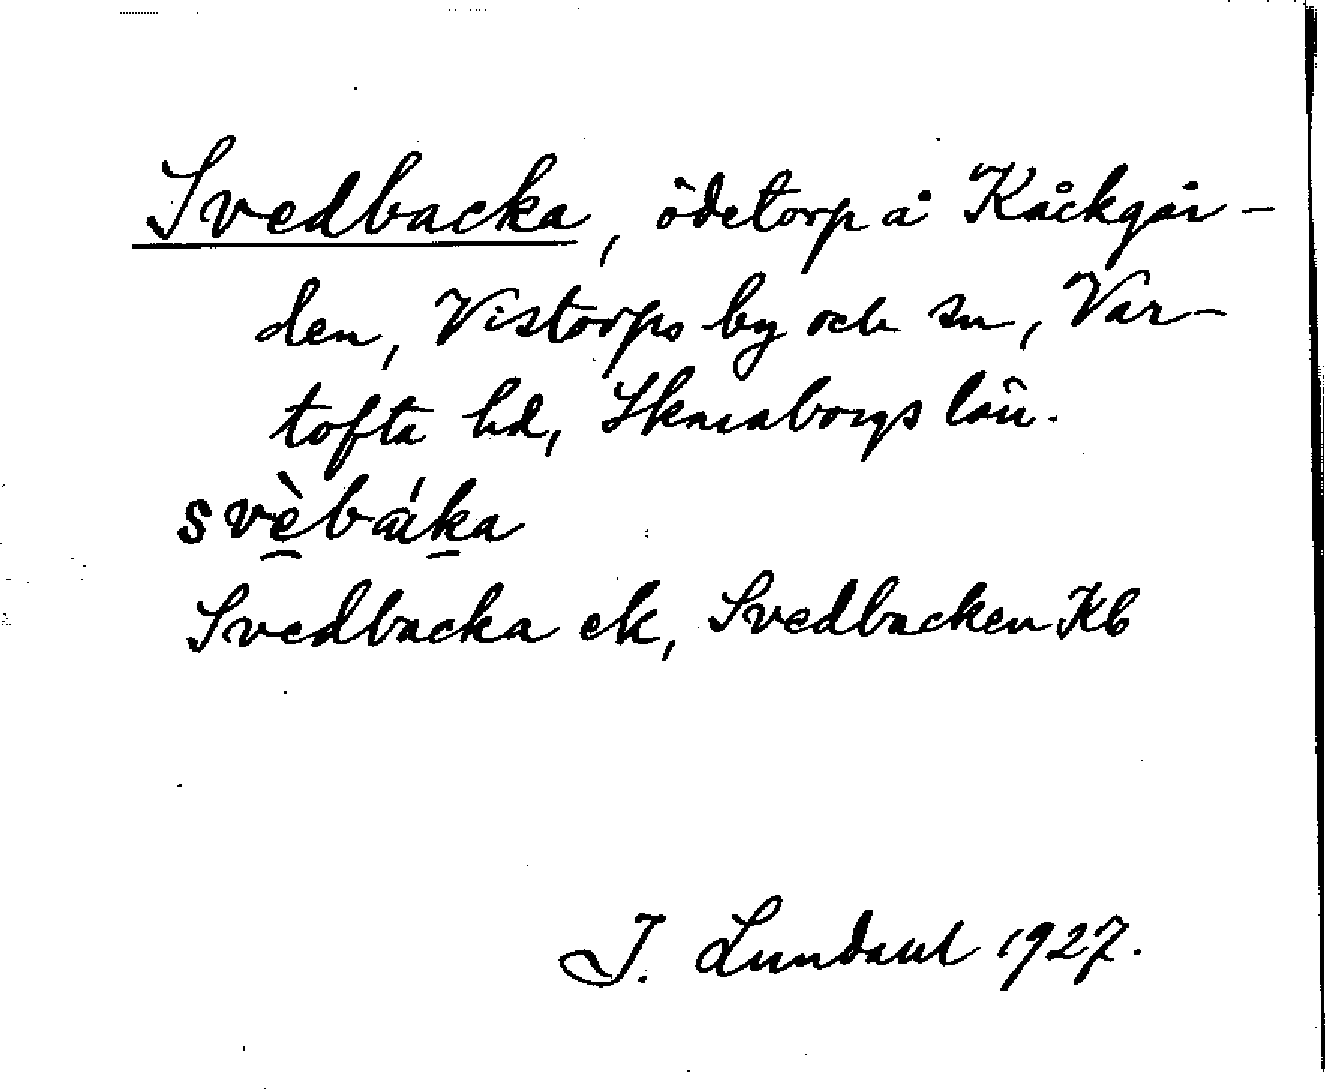 Svedbacka, ödetorp å Kåckgår-
den, Vistorps by och sn, Var-
tofta hd, Skaraborgs län.
svèbáka
Svedbacka ek, Svedbacken Kb
J. Lundahl 1927.